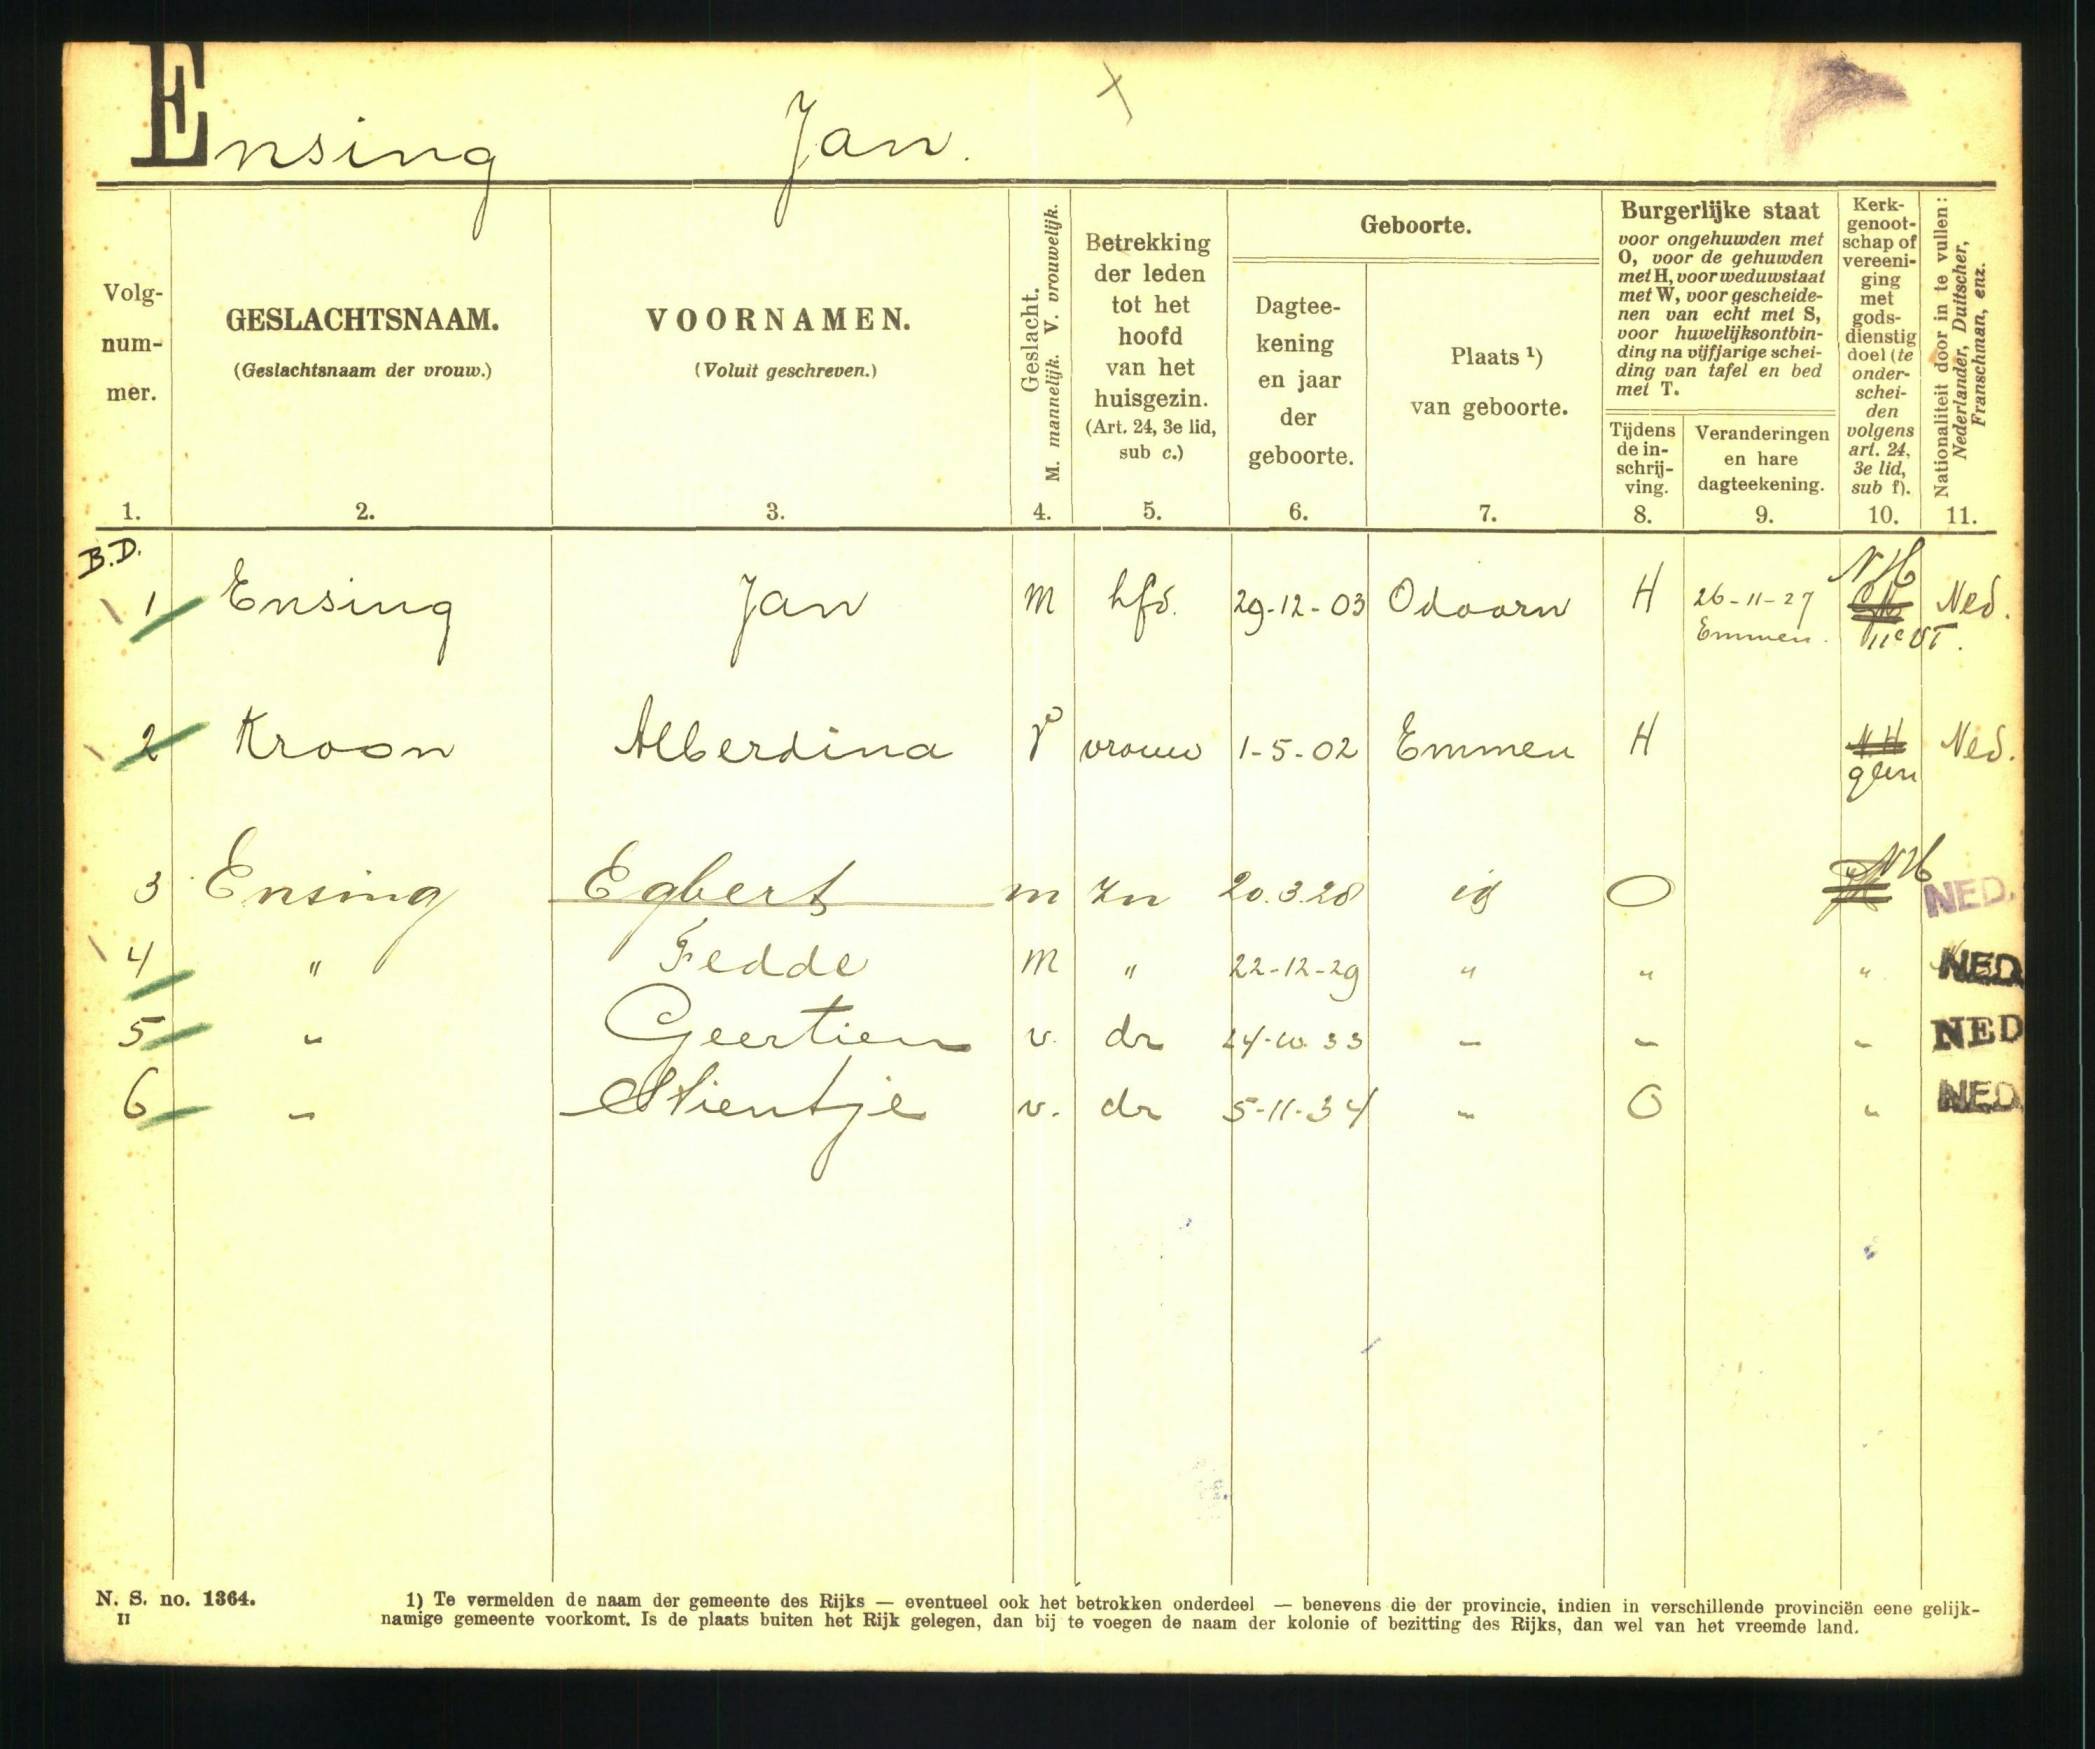 Ensing Jan.
Volg-
num-
mer.
1.
GESLACHTSNAAM.
(Geslachtsnaam der vrouw.)
2.
VOORNAMEN.
(Voluit geschreven.)
3.
Geslacht.
M. mannelijk. V. vrouwelijk.
4.
Betrekking
der leden
tot het
hoofd
van het
huisgezin.
(Art. 24, 3e lid,
sub c.)
5.
Geboorte.
Dagtee-
kening
en jaar
der
geboorte.
6.
Plaats ¹)
van geboorte.
7.
Burgerlijke staat
voor ongehuwden met
O, voor de gehuwden
met H, voor weduwstaat
met W, voor gescheide-
nen van echt met S,
voor huwelijksontbin-
ding na vijfjarige schei-
ding van tafel en bed
met T.
Tijdens
de in-
schrij-
ving.
8.
Veranderingen
en hare
dagteekening.
9.
Kerk-
genoot-
schap of
vereeni-
ging
met
gods-
dienstig
doel (te
onder-
schei-
den
volgens
art. 24,
3e lid,
sub f).
10.
Nationaliteit door in te vullen:
Nederlander, Duitscher,
Franschman, enz.
11.
B.D.
1 Ensing Jan M hfd. 29-12-03 Odoorn H 26-11-27 Emmen. NH Ned.
2 Kroon Alberdina V vrouw 1-5-02 Emmen H N.H geen Ned.
3 Ensing Egbert m zn 20.3.28 id O NH NED.
4 " Fedde M " 22-12-29 " " " NED
5 " Geertien v. dr 24-10-33 " " " NED
6 " Stientje v. dr 5-11-34 " O " NED
N. S. no. 1364.
II
1) Te vermelden de naam der gemeente des Rijks — eventueel ook het betrokken onderdeel — benevens die der provincie, indien in verschillende provinciën eene gelijk-
namige gemeente voorkomt. Is de plaats buiten het Rijk gelegen, dan bij te voegen de naam der kolonie of bezitting des Rijks, dan wel van het vreemde land.